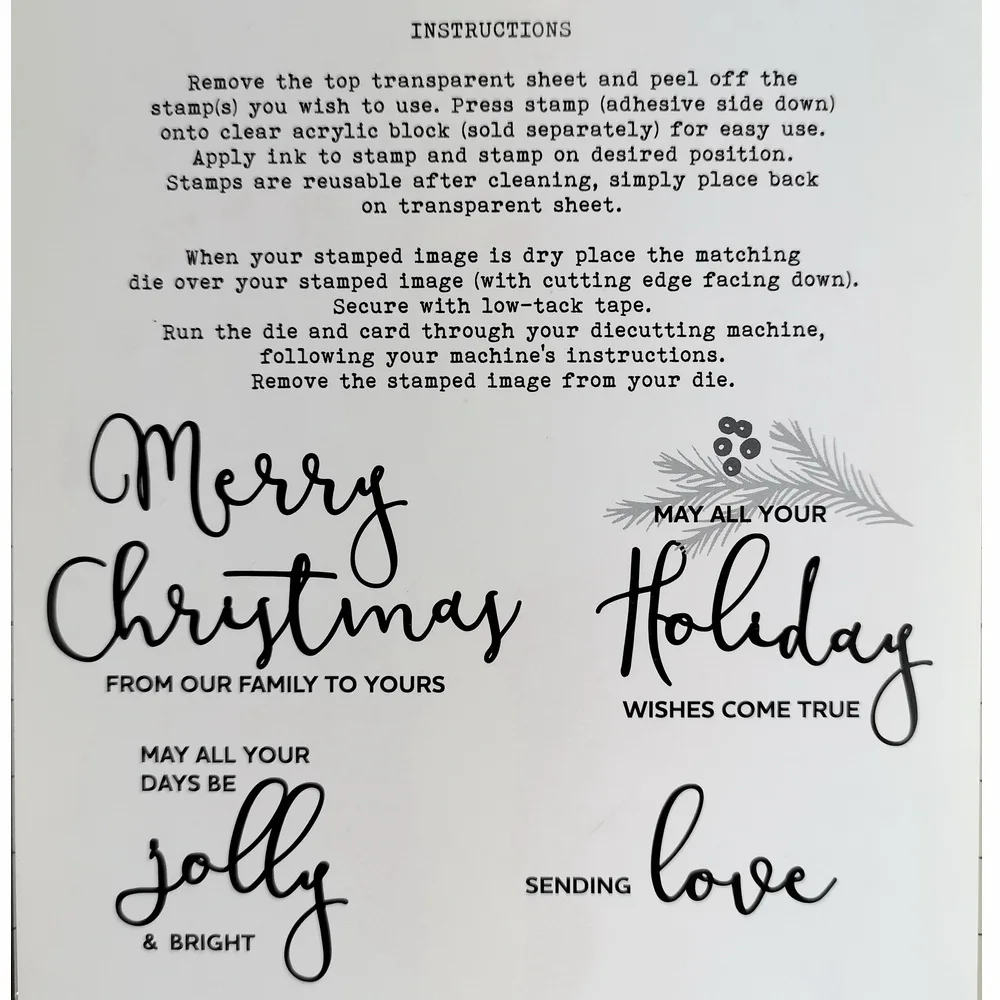 INSTRUCTIONS
Remove the top transparent sheet and peel off the
stamp(s) you wish to use. Press stamp (adhesive side down)
onto clear acrylic block (sold separately) for easy use.
Apply ink to stamp and stamp on desired position.
Stamps are reusable after cleaning, simply place back
on transparent sheet.
When your stamped image is dry place the matching
die over your stamped image (with cutting edge facing down).
Secure with low-tack tape.
Run the die and card through your diecutting machine,
following your machine's instructions.
Remove the stamped image from your die.
Merry
Christmas
FROM OUR FAMILY TO YOURS
MAY ALL YOUR
Holiday
WISHES COME TRUE
MAY ALL YOUR
DAYS BE
jolly
& BRIGHT
SENDING love